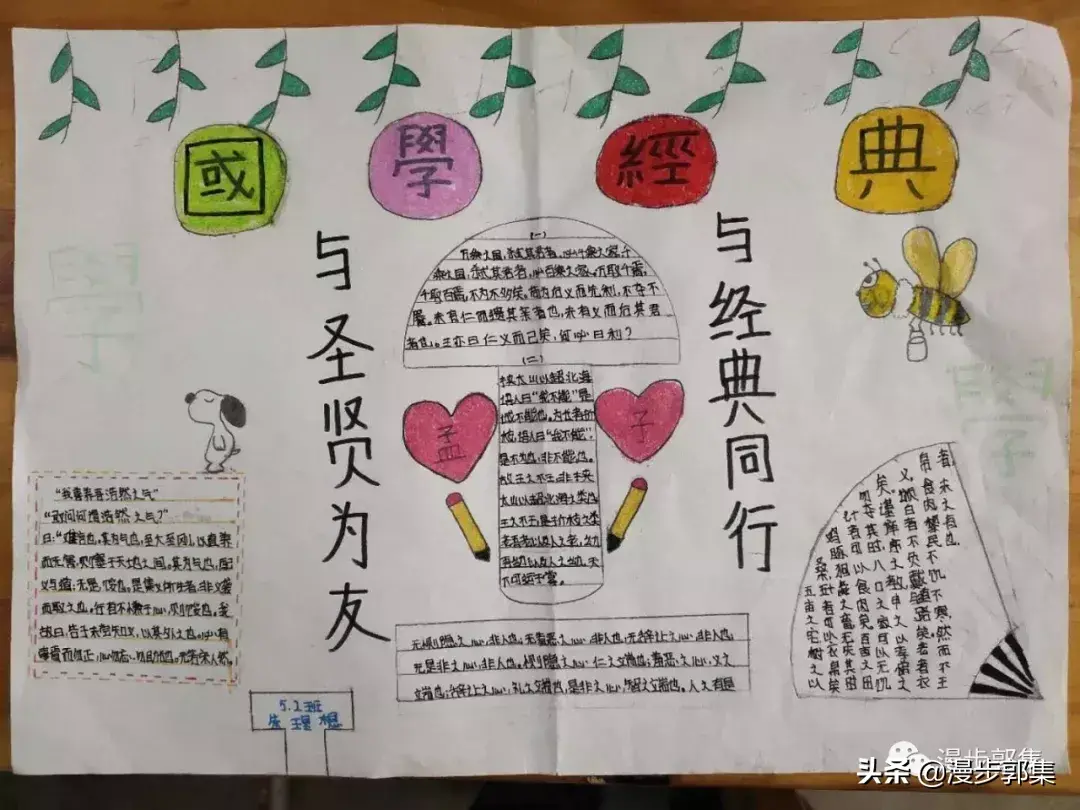 國 學 經 典
与圣贤为友
与经典同行
(一)
万乘之国,弑其君者,必千乘之家,千
乘之国,弑其君者,必百乘之家。万取千焉,
千取百焉,不为不多矣。苟为后义而先利,不夺不
餍。未有仁而遗其亲者也,未有义而后其君
者也。王亦曰仁义而已矣,何必曰利?
(二)
挟太山以超北海
语人曰“我不能”是
诚不能也。为长者折
枝,语人曰“我不能”,
是不为也,非不能也。
故王之不王,非挟
太山以超北海之类也
王之不王,是折枝之类
孟
子
“我善养吾浩然之气”
“敢问何谓浩然之气?”
曰:“难言也,其为气也,至大至刚,以直养
而无害,则塞于天地之间。其为气也,配
义与道;无是,馁也。是集义所生者,非义袭
而取之也。行有不慊于心,则馁也。我
故曰,告子未尝知义,以其外之也。必有
事焉而勿正,心勿忘,勿助长也。无若宋人然。
无恻隐之心,非人也;无羞恶之心,非人也;无辞让之心,非人也,
无是非之心,非人也。恻隐之心,仁之端也;羞恶之心,义之
端也;辞让之心,礼之端也,是非之心,智之端也。人之有是
者,未之有也。
帛食肉,黎民不饥不寒,然而不王
义,颁白者不负戴于道路矣。老者衣
矣。谨庠序之教,申之以孝悌之
勿夺其时,八口之家可以无饥
计者可以食肉矣。百亩之田
鸡豚狗彘之畜,无失其时
桑,五十者可以衣帛矣
五亩之宅,树之以
5.2班
學
學
漫步郭集
头条 @漫步郭集